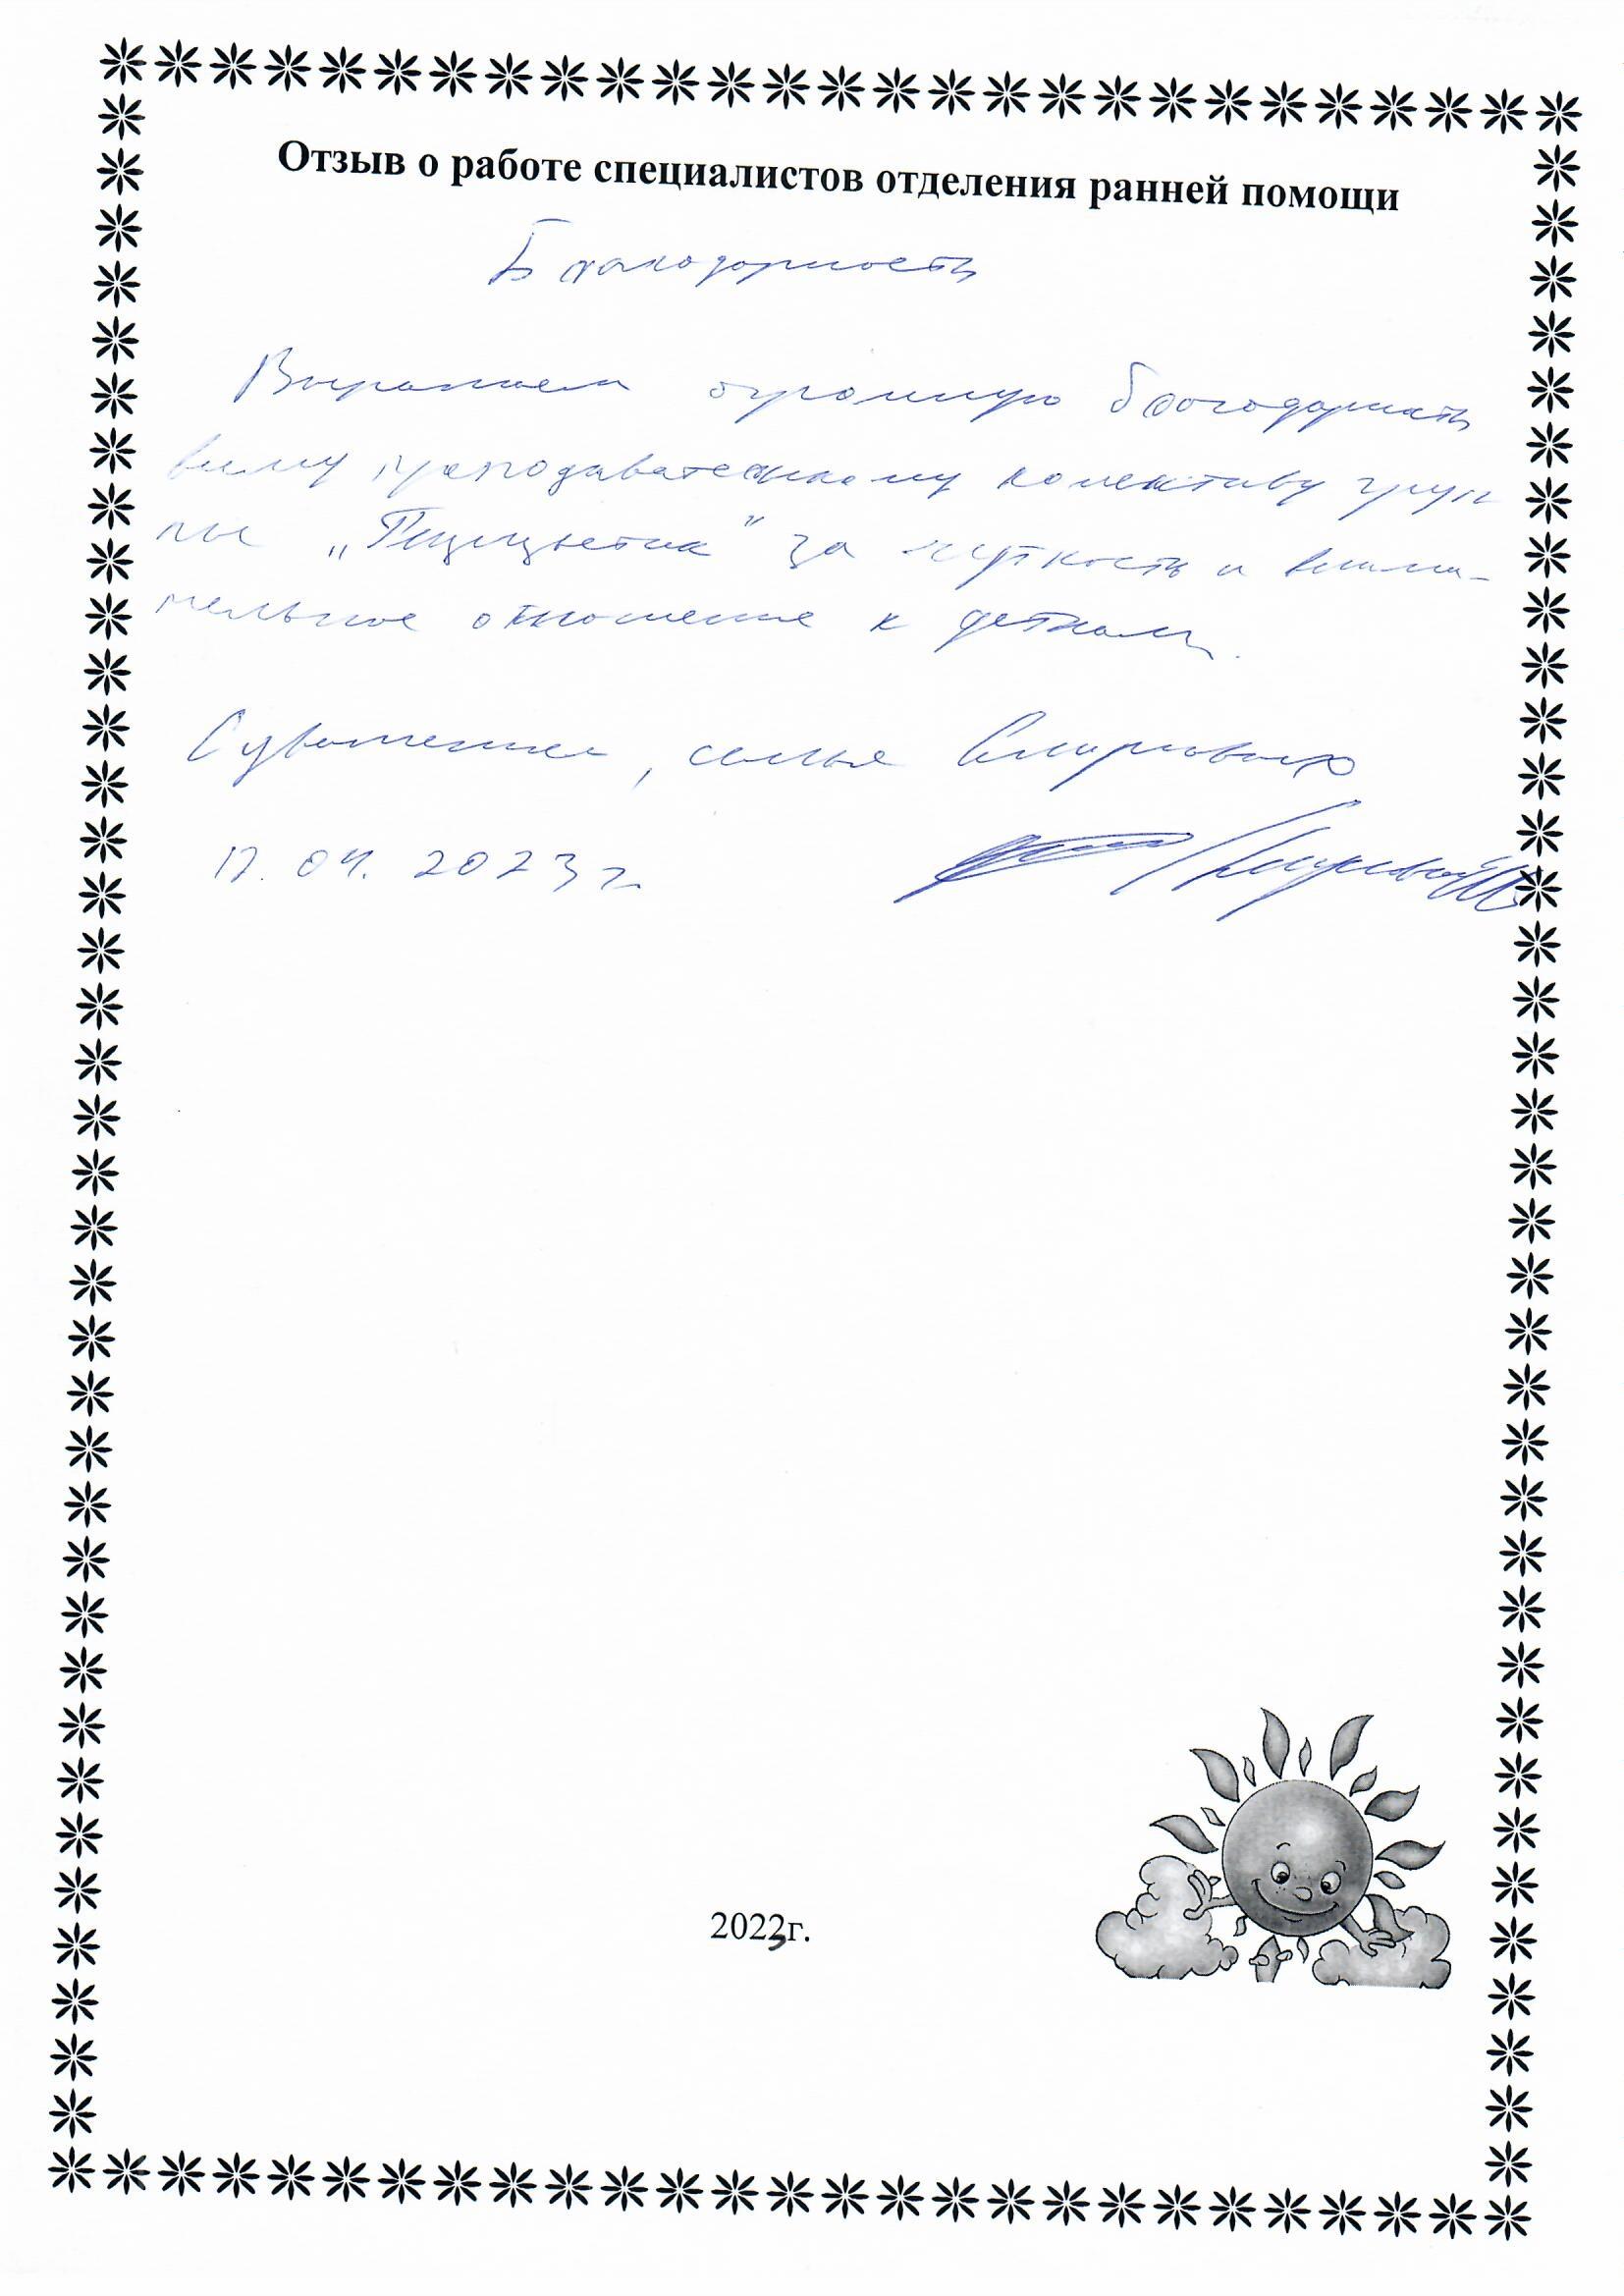 Отзыв о работе специалистов отделения ранней помощи
Благодарность
Выражаем огромную благодарность
всему преподавательскому колективу груп
пы „ " за чуткость и внима-
тельное отношение к деткам.
С уважением, семья Смирновых
17.04.2023г.
2023г.